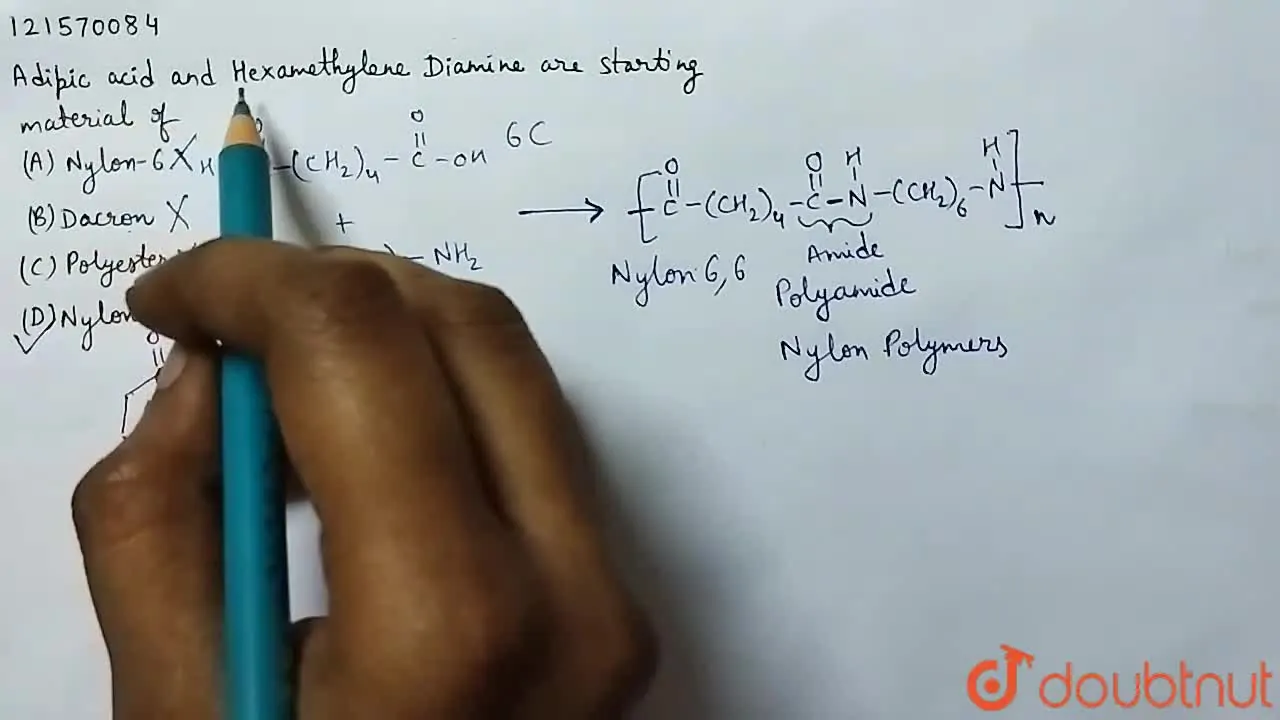 121570084
Adipic acid and Hexamethylene Diamine are starting
material of
(A) Nylon-6 X
(B) Dacron X
(C) Polyester
(D) Nylon
H
-(CH2)4-C-OH
O
6C
+
-NH2
[C-(CH2)4-C-N-(CH2)6-N]n
O O H H
Amide
Nylon 6,6
Polyamide
Nylon Polymers
doubtnut